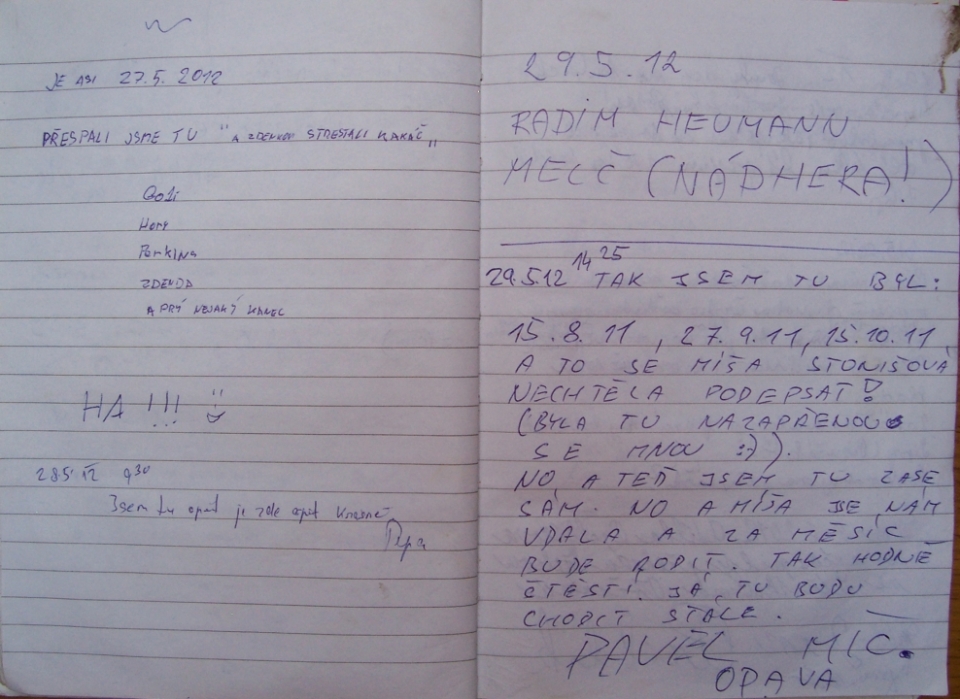 JE ASI 27.5. 2012
PŘESPALI JSME TU "A ZDENKOU STRESTALI KAKAČ„
Goli
Hony
Parkina
ZDENDA
A PRÝ NĚJAKÝ KANEC
HA !!! :)
28.5.12 9³⁰
Jsem tu opět je zde opět krásně
Pepa
29.5.12
RADIM HEUMANN
MELČ (NÁDHERA!)
29.5.12 14²⁵ TAK JSEM TU BYL:
15.8.11, 27.9.11, 15.10.11,
A TO SE MÍŠA STONIŠOVÁ
NECHTĚLA PODEPSAT!
(BYLA TU NAZAPŘENOU
SE MNOU :)).
NO A TEĎ JSEM TU ZASE
SÁM. NO A MÍŠA SE NÁM
VDALA A ZA MĚSÍC
BUDE RODIT. TAK HODNĚ
ČTĚSTÍ. JÁ TU BUDU
CHODIT STÁLE.
PAVEL MIC.
OPAVA